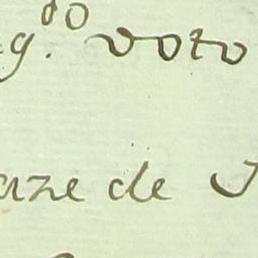 g.do voto
aze de J